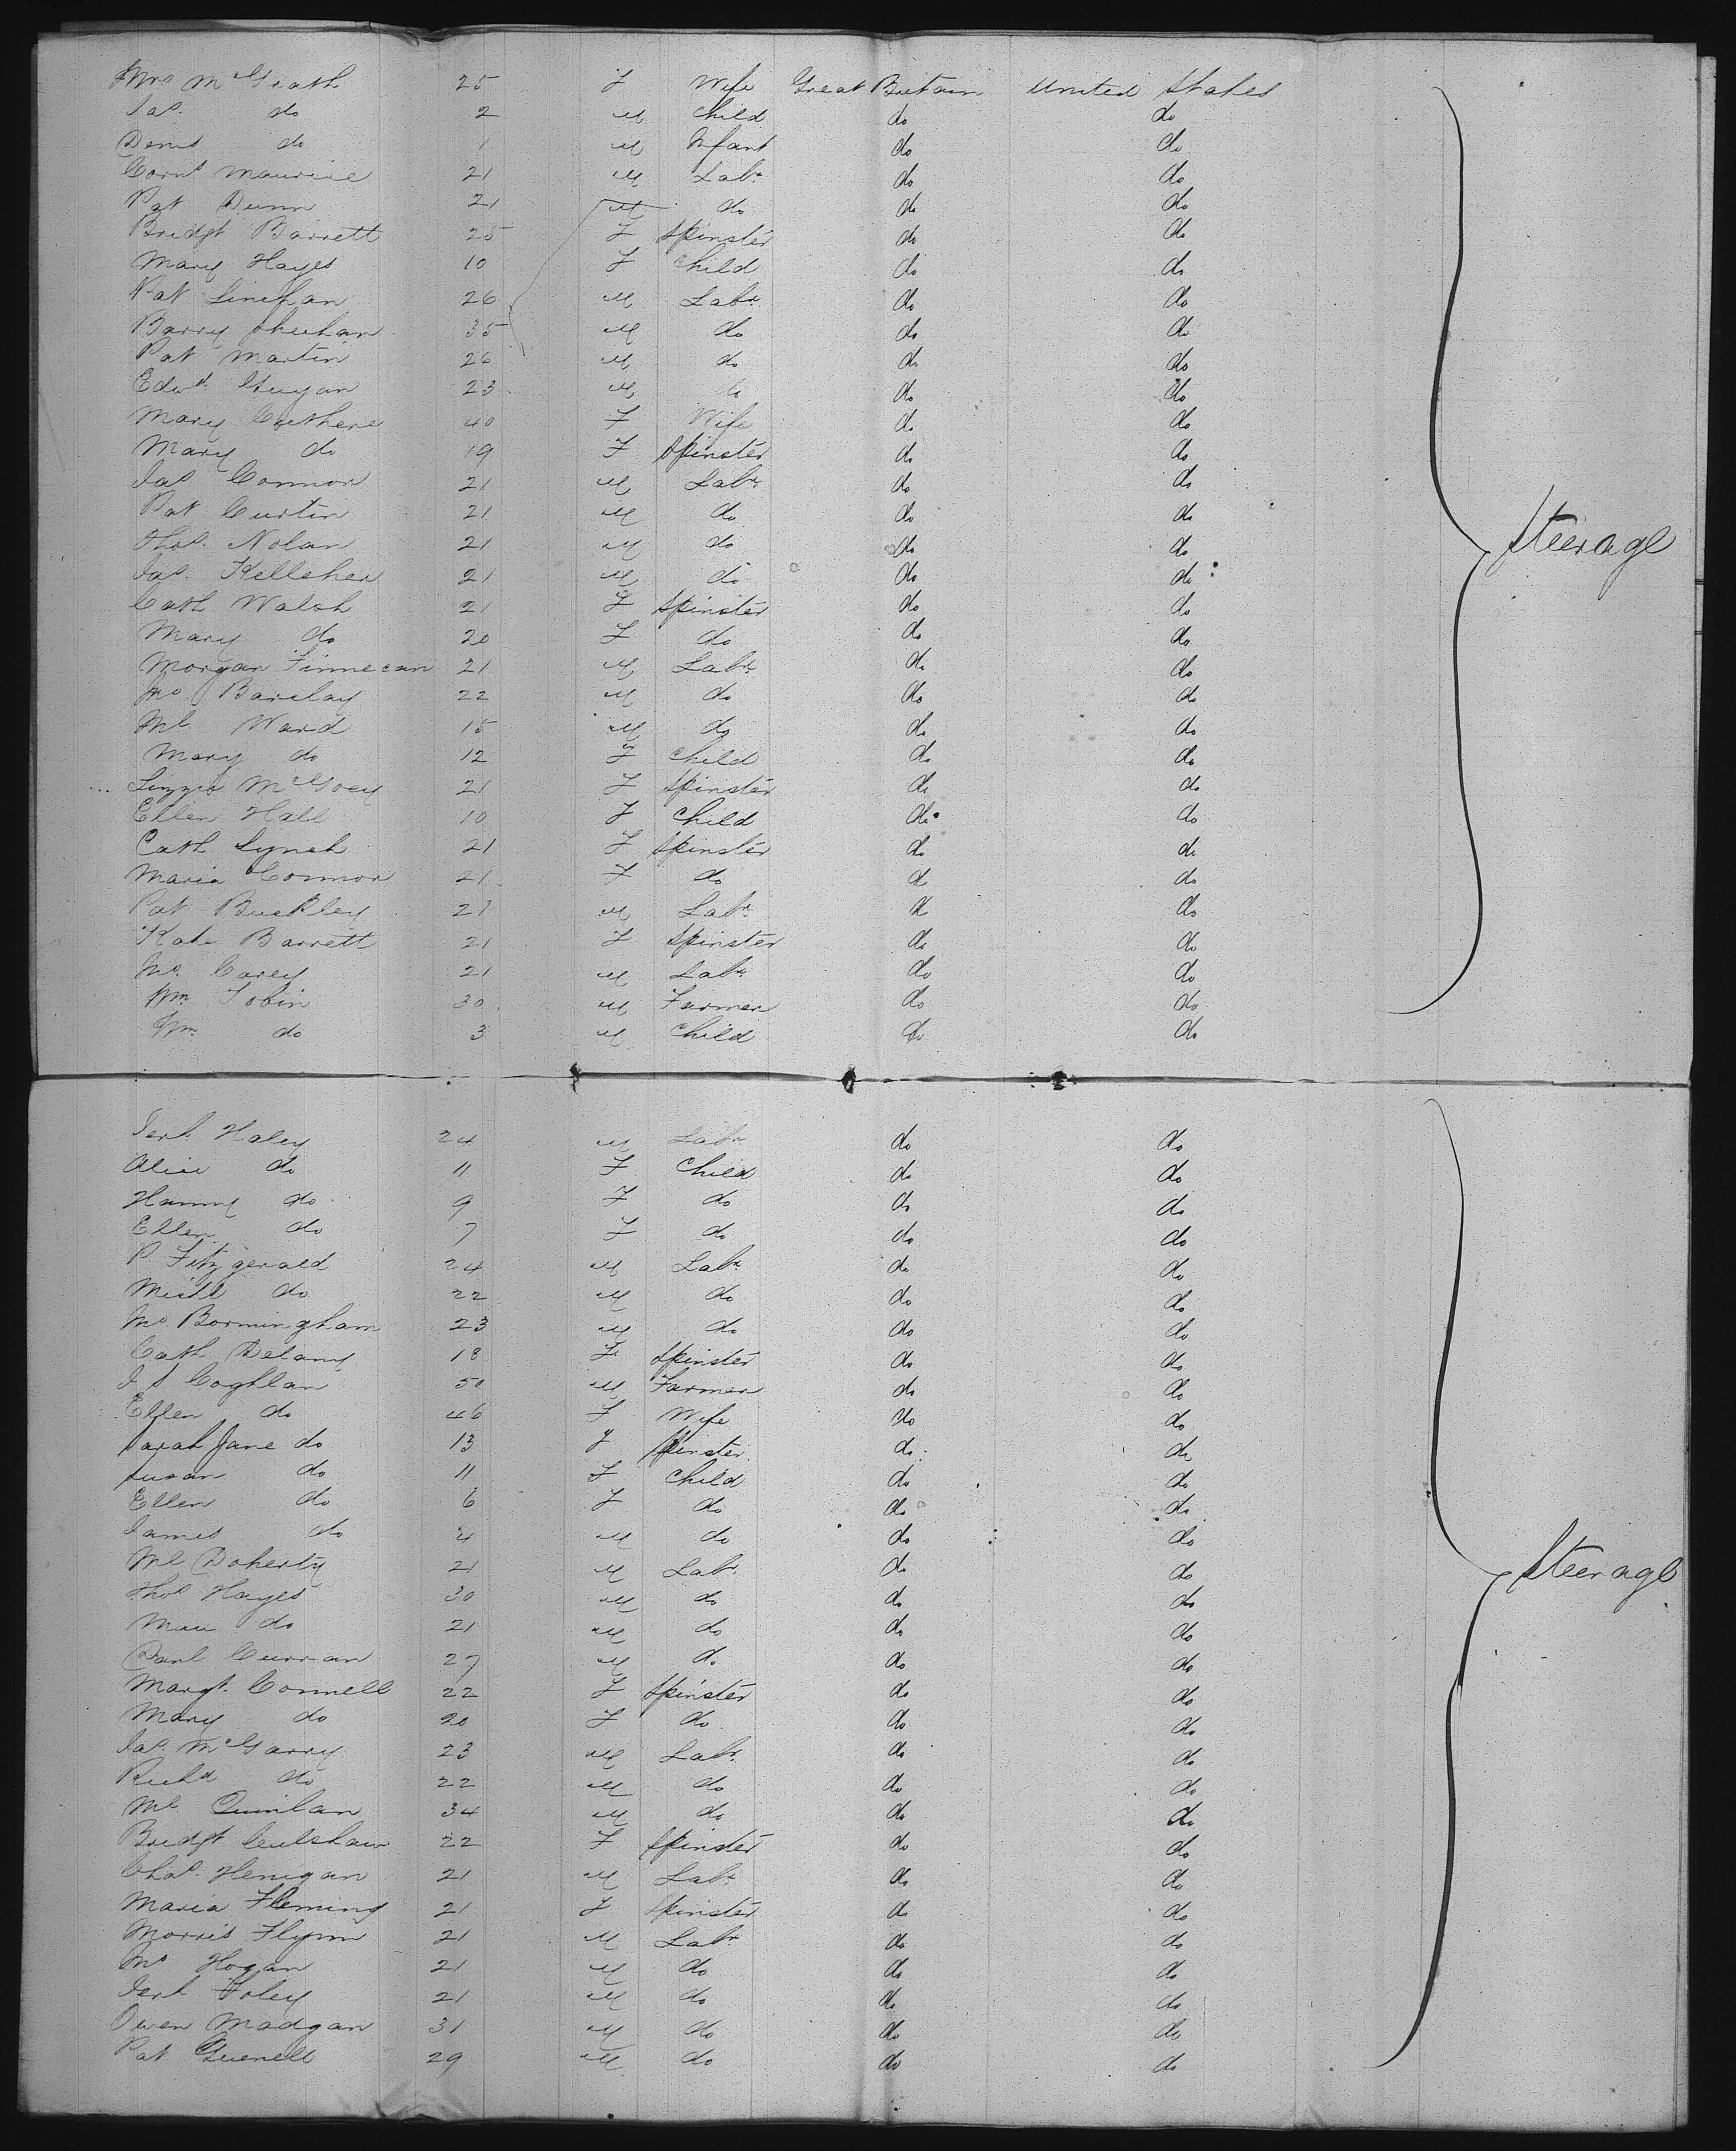 Mrs McGrath 25 F Wife Great Britain United States
Jas. do 2 M Child do do
Denis do 1 M Infant do do
Cornl Maurice 21 M Labr do do
Pat Dunn 21 M do do do
Bridgt Barrett 25 F Spinster do do
Mary Hayes 10 F Child do do
Pat Linehan 26 M Labr do do
Barry Sheehan 35 M do do do
Pat Martin 26 M do do do
Edwd 23 M do do do
Mary 40 F Wife do do
Mary do 19 F Spinster do do
Jas Connor 21 M Labr do do
Pat Curtin 21 M do do do
Thos. Nolan 21 M do do do
Steerage
Jas. Kelleher 21 M do do do
Cath Walsh 21 F Spinster do do
Mary do 20 F do do do
Morgan Finnecan 21 M Labr do do
Jno Barclay 22 M do do do
Ml Ward 15 M do do do
Mary do 12 F Child do do
Lizzie McGoey 21 F Spinster do do
Ellen Hall 10 F Child do do
Cath Lynch 21 F Spinster do do
Maria Connor 21 F do do do
Pat Buckley 21 M Labr do do
Kate Barrett 21 F Spinster do do
Jno. Carey 21 M Labr do do
Wm Tobin 30 M Farmer do do
Wm. do 3 M Child do do
Jerh Haley 24 M Labr do do
Alice do 11 F Child do do
Hanny do 9 F do do do
Ellen do 7 F do do do
P Fitzgerald 24 M Labr do do
Michl do 22 M do do do
Jno Bormingham 23 M do do do
Cath Delany 18 F Spinster do do
J S Coghlan 50 M Farmer do do
Ellen do 46 F Wife do do
Sarah Jane do 13 F Spinster do do
Susan do 11 F Child do do
Ellen do 6 F do do do
James do 4 M do do do
Ml Doherty 21 M Labr do do
Steerage
Thos Hayes 30 M do do do
Mau do 21 M do do do
Danl Curran 27 M do do do
Margt. Connell 22 F Spinster do do
Mary do 20 F do do do
Jas. McGarry 23 M Labr do do
Richd do 22 M do do do
Ml Quinlan 34 M do do do
Bridgt 22 F Spinster do do
Chas. Henigan 21 M Labr do do
Maria Fleming 21 F Spinster do do
Morris Flynn 21 M Labr do do
Jno Hogan 21 M do do do
Jerh Foley 21 M do do do
Owen Madgan 31 M do do do
Pat 29 M do do do